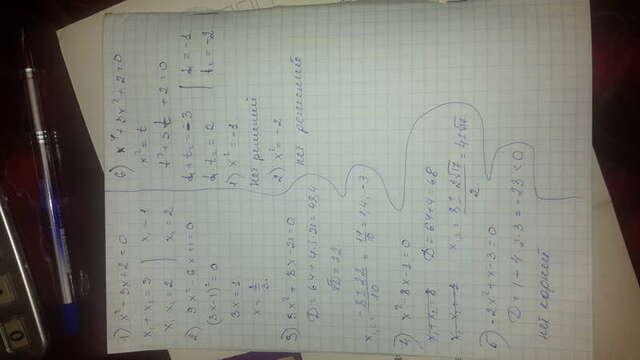 1) x² - 3x + 2 = 0
x₁ + x₂ = 3 | x₁ = 1
x₁ x₂ = 2 | x₂ = 2
2) 9x² - 6x + 1 = 0
(3x - 1)² = 0
3x = 1
x = 1/3
3) 5x² + 8x - 21 = 0
D = 64 + 4·5·21 = 484
√D = 22
x₁,₂ = (-8 ± 22)/10 = 14/10 = 1,4; -3
4) x² - 8x - 1 = 0
x₁ + x₂ = 8 D = 64 + 4 = 68
x₁ x₂ = -1 x₁,₂ = (8 ± 2√17)/2 = 4 ± √17
5) -2x² + x - 3 = 0
D = 1 - 4·2·3 = -23 < 0
нет корней
6) x⁴ + 3x² + 2 = 0
x² = t
t² + 3t + 2 = 0
t₁ + t₂ = -3 | t₁ = -1
t₁ t₂ = 2 | t₂ = -2
1) x² = -1
нет решений
2) x² = -2
нет решений